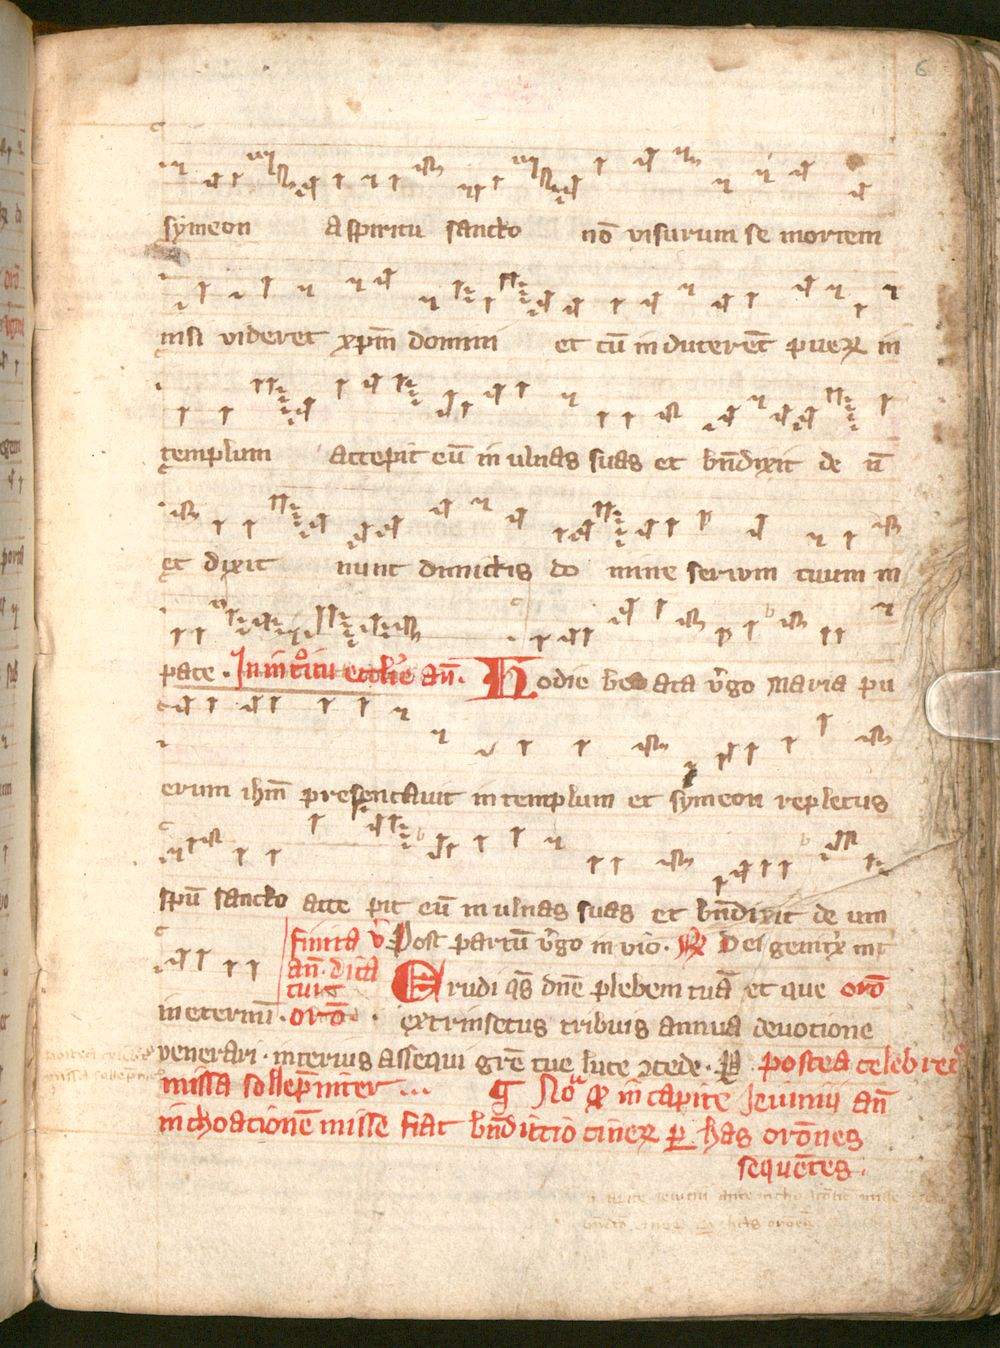 6
symeon A spiritu sancto nō visurum se mortem
nisi videret xp̄m domini et cū inducerēt puerꝝ in
templum accepit eū in ulnas suas et bn̄dixit de ū
et dixit nunc dimictis do mine servum tuum in
pace. In introitu ecclīe an̄. Hodie beata v̄go maria pu
erum ihm̄ presentavit in templum et symeon repletus
spū sancto acce pit eū in ulnas suas et bn̄dixit de um
finita v̄ Post partū v̄go in vio. ℟ Dei genitx̄ int
an̄. dicatur Erudi qs̄ dn̄e plebem tuā et que orō
in eternū. orō. extrinsecus tribuis annua devotione
venerari. interius assequi grē tue luce ↄcede. P postea celebret᷑
missa sollep̄niter ...
¶ Noᵃ ꝙ in capite Jeiunij an̄
inchoationē misse fiat bn̄dictio cinerꝝ ꝑ has orōnes
sequētes.